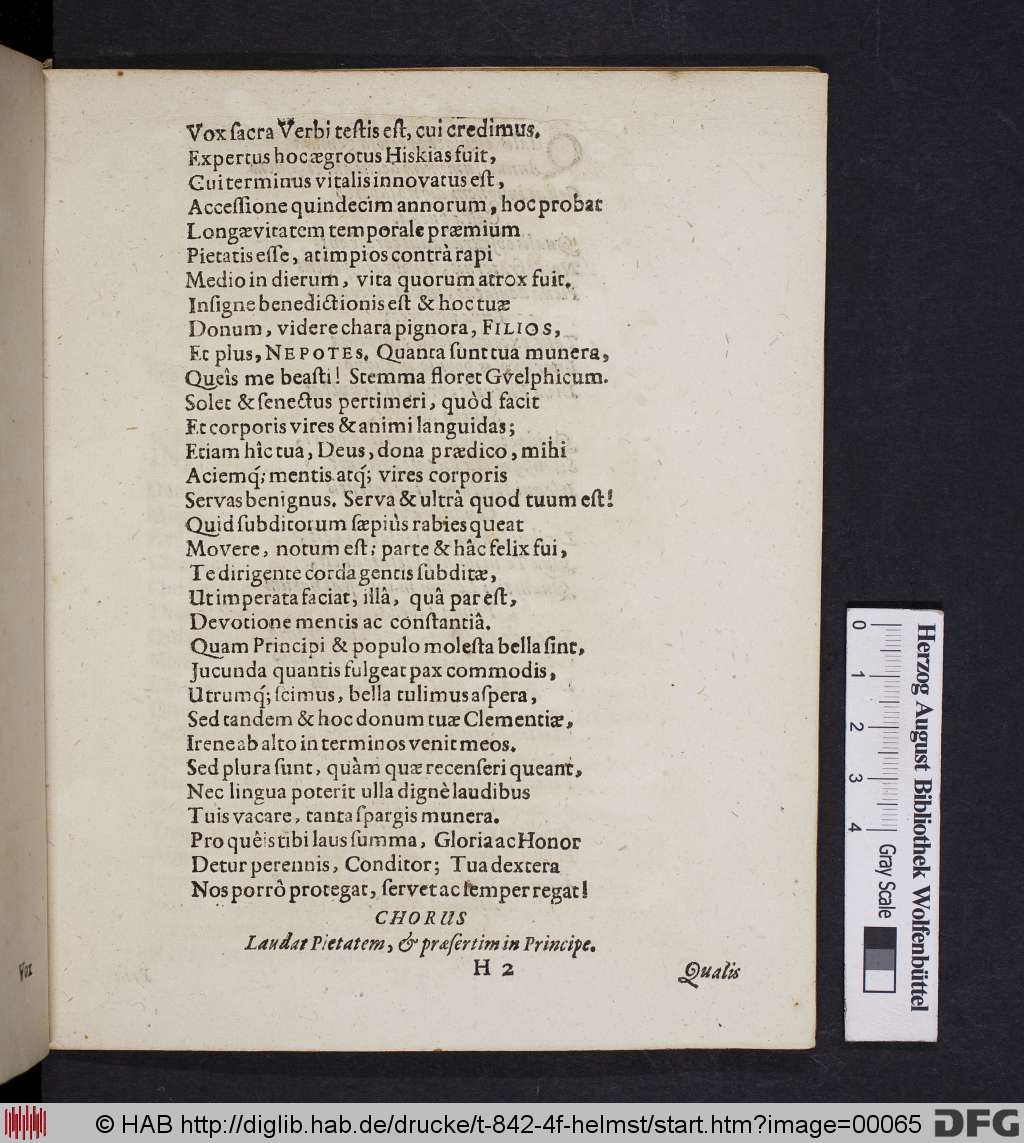 Vox ſacra Verbi teſtis eſt, cui credimus.
Expertus hoc ægrotus Hiskias fuit,
Cui terminus vitalis innovatus eſt,
Acceſſione quindecim annorum, hoc probat
Longævitatem temporale præmium
Pietatis eſſe, at impios contrà rapi
Medio in dierum, vita quorum atrox fuit.
Inſigne benedictionis eſt & hoc tuæ
Donum, videre chara pignora, FILIOS,
Et plus, NEPOTES. Quanta ſunt tua munera,
Queîs me beaſti! Stemma floret Gvelphicum.
Solet & ſenectus pertimeri, quòd facit
Et corporis vires & animi languidas;
Etiam hîc tua, Deus, dona prædico, mihi
Aciemq́; mentis atq́; vires corporis
Servas benignus. Serva & ultrà quod tuum eſt!
Quid ſubditorum ſæpiùs rabies queat
Movere, notum eſt; parte & hâc felix fui,
Te dirigente corda gentis ſubditæ,
Ut imperata faciat, illâ, quâ par eſt,
Devotione mentis ac conſtantiâ.
Quam Principi & populo moleſta bella ſint,
Jucunda quantis fulgeat pax commodis,
Utrumq́; ſcimus, bella tulimus aſpera,
Sed tandem & hoc donum tuæ Clementiæ,
Irene ab alto in terminos venit meos.
Sed plura ſunt, quàm quæ recenſeri queant,
Nec lingua poterit ulla dignè laudibus
Tuis vacare, tanta ſpargis munera.
Pro quêis tibi laus ſumma, Gloria ac Honor
Detur perennis, Conditor; Tua dextera
Nos porrò protegat, ſervet ac ſemper regat!
CHORUS
Laudat Pietatem, & præſertim in Principe.
H 2
Qualis
Vox
0 1 2 3 4
Herzog August Bibliothek Wolfenbüttel
Gray Scale
© HAB http://diglib.hab.de/drucke/t-842-4f-helmst/start.htm?image=00065
DFG